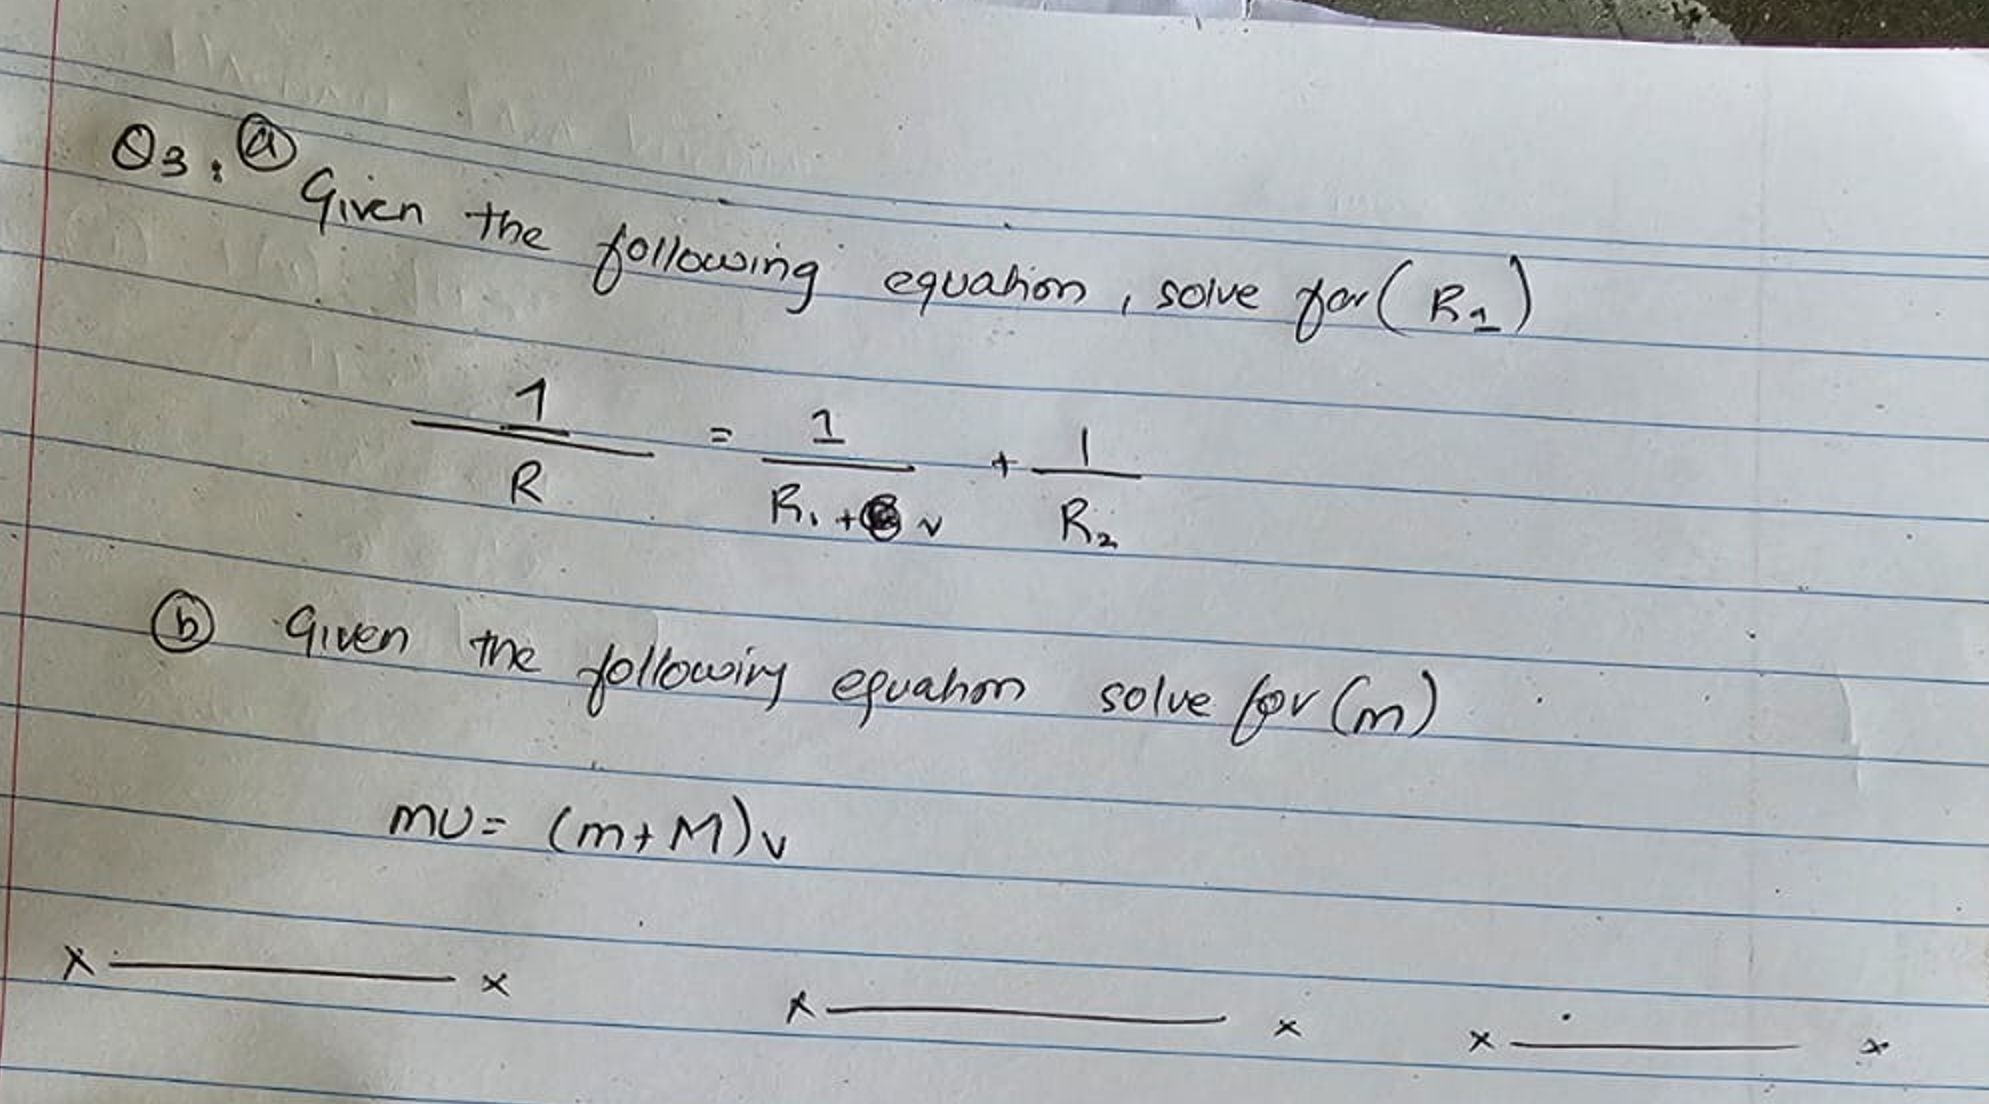 Q3: (a) Given the following equation, solve for (R1)
1/R = 1/(R1 + v) + 1/R2
(b) Given the following equation solve for (m)
mu = (m+M)v
x x x x x x